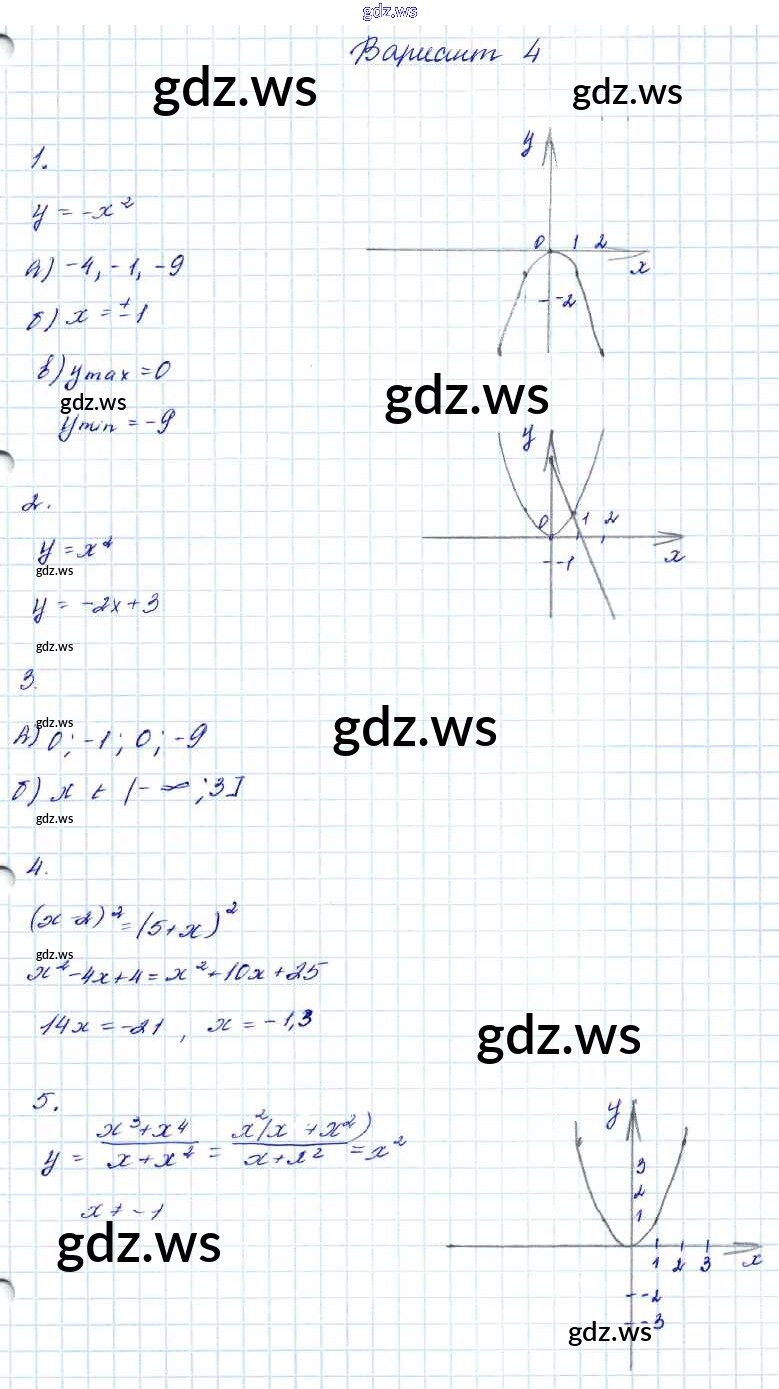 gdz.ws
Вариант 4
gdz.ws
gdz.ws
1.
y = -x²
а) -4, -1, -9
б) x = ±1
в) y max = 0
gdz.ws
y min = -9
y
0 1 2
x
-2
gdz.ws
2.
y = x²
gdz.ws
y = -2x+3
gdz.ws
y
0 1 2
x
-1
3.
gdz.ws
а) 0; -1; 0; -9
gdz.ws
б) x ∈ (-∞; 3]
gdz.ws
4.
(x-2)² = (5+x)²
gdz.ws
x²-4x+4 = x²+10x+25
14x = -21, x = -1,3
gdz.ws
5.
y = (x³+x⁴)/(x+x²) = x²(x+x²)/(x+x²) = x²
x ≠ -1
gdz.ws
y
3
2
1
1 2 3
x
-2
-3
gdz.ws